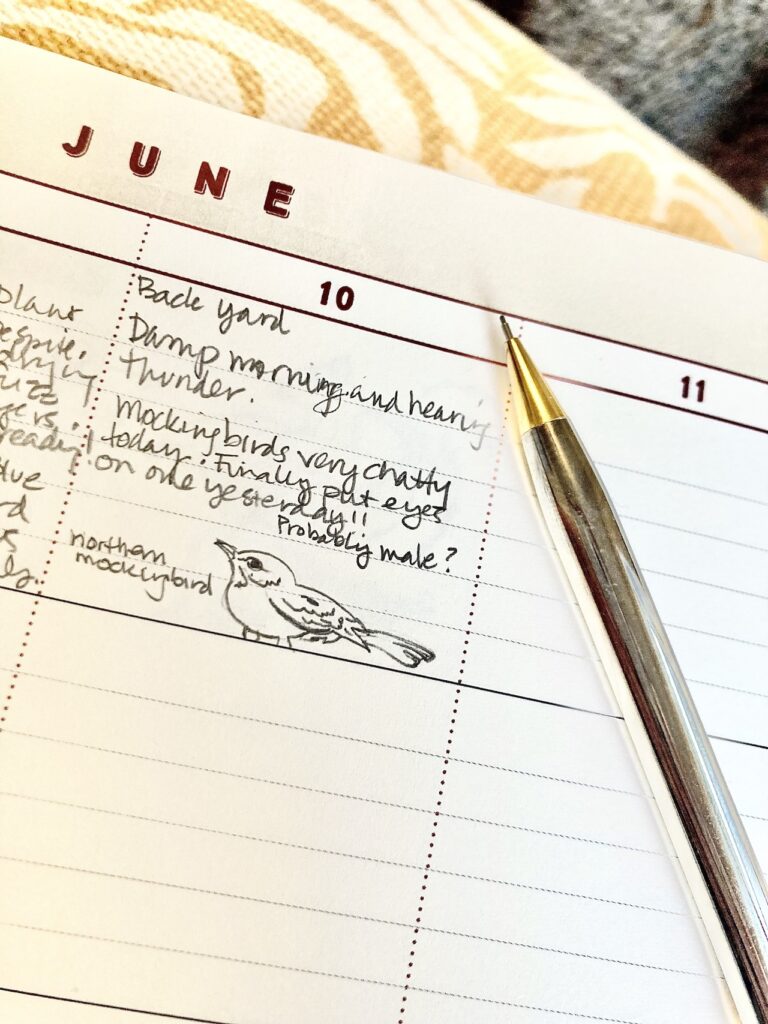 JUNE
10
11
plant
espite.
drying
uzz
gers.
ready!
blue
rd
s
ly.
Back yard
Damp morning and hearing
thunder.
Mockingbirds very chatty
today. Finally put eyes
on one yesterday!!
Probably male?
northern
mockingbird